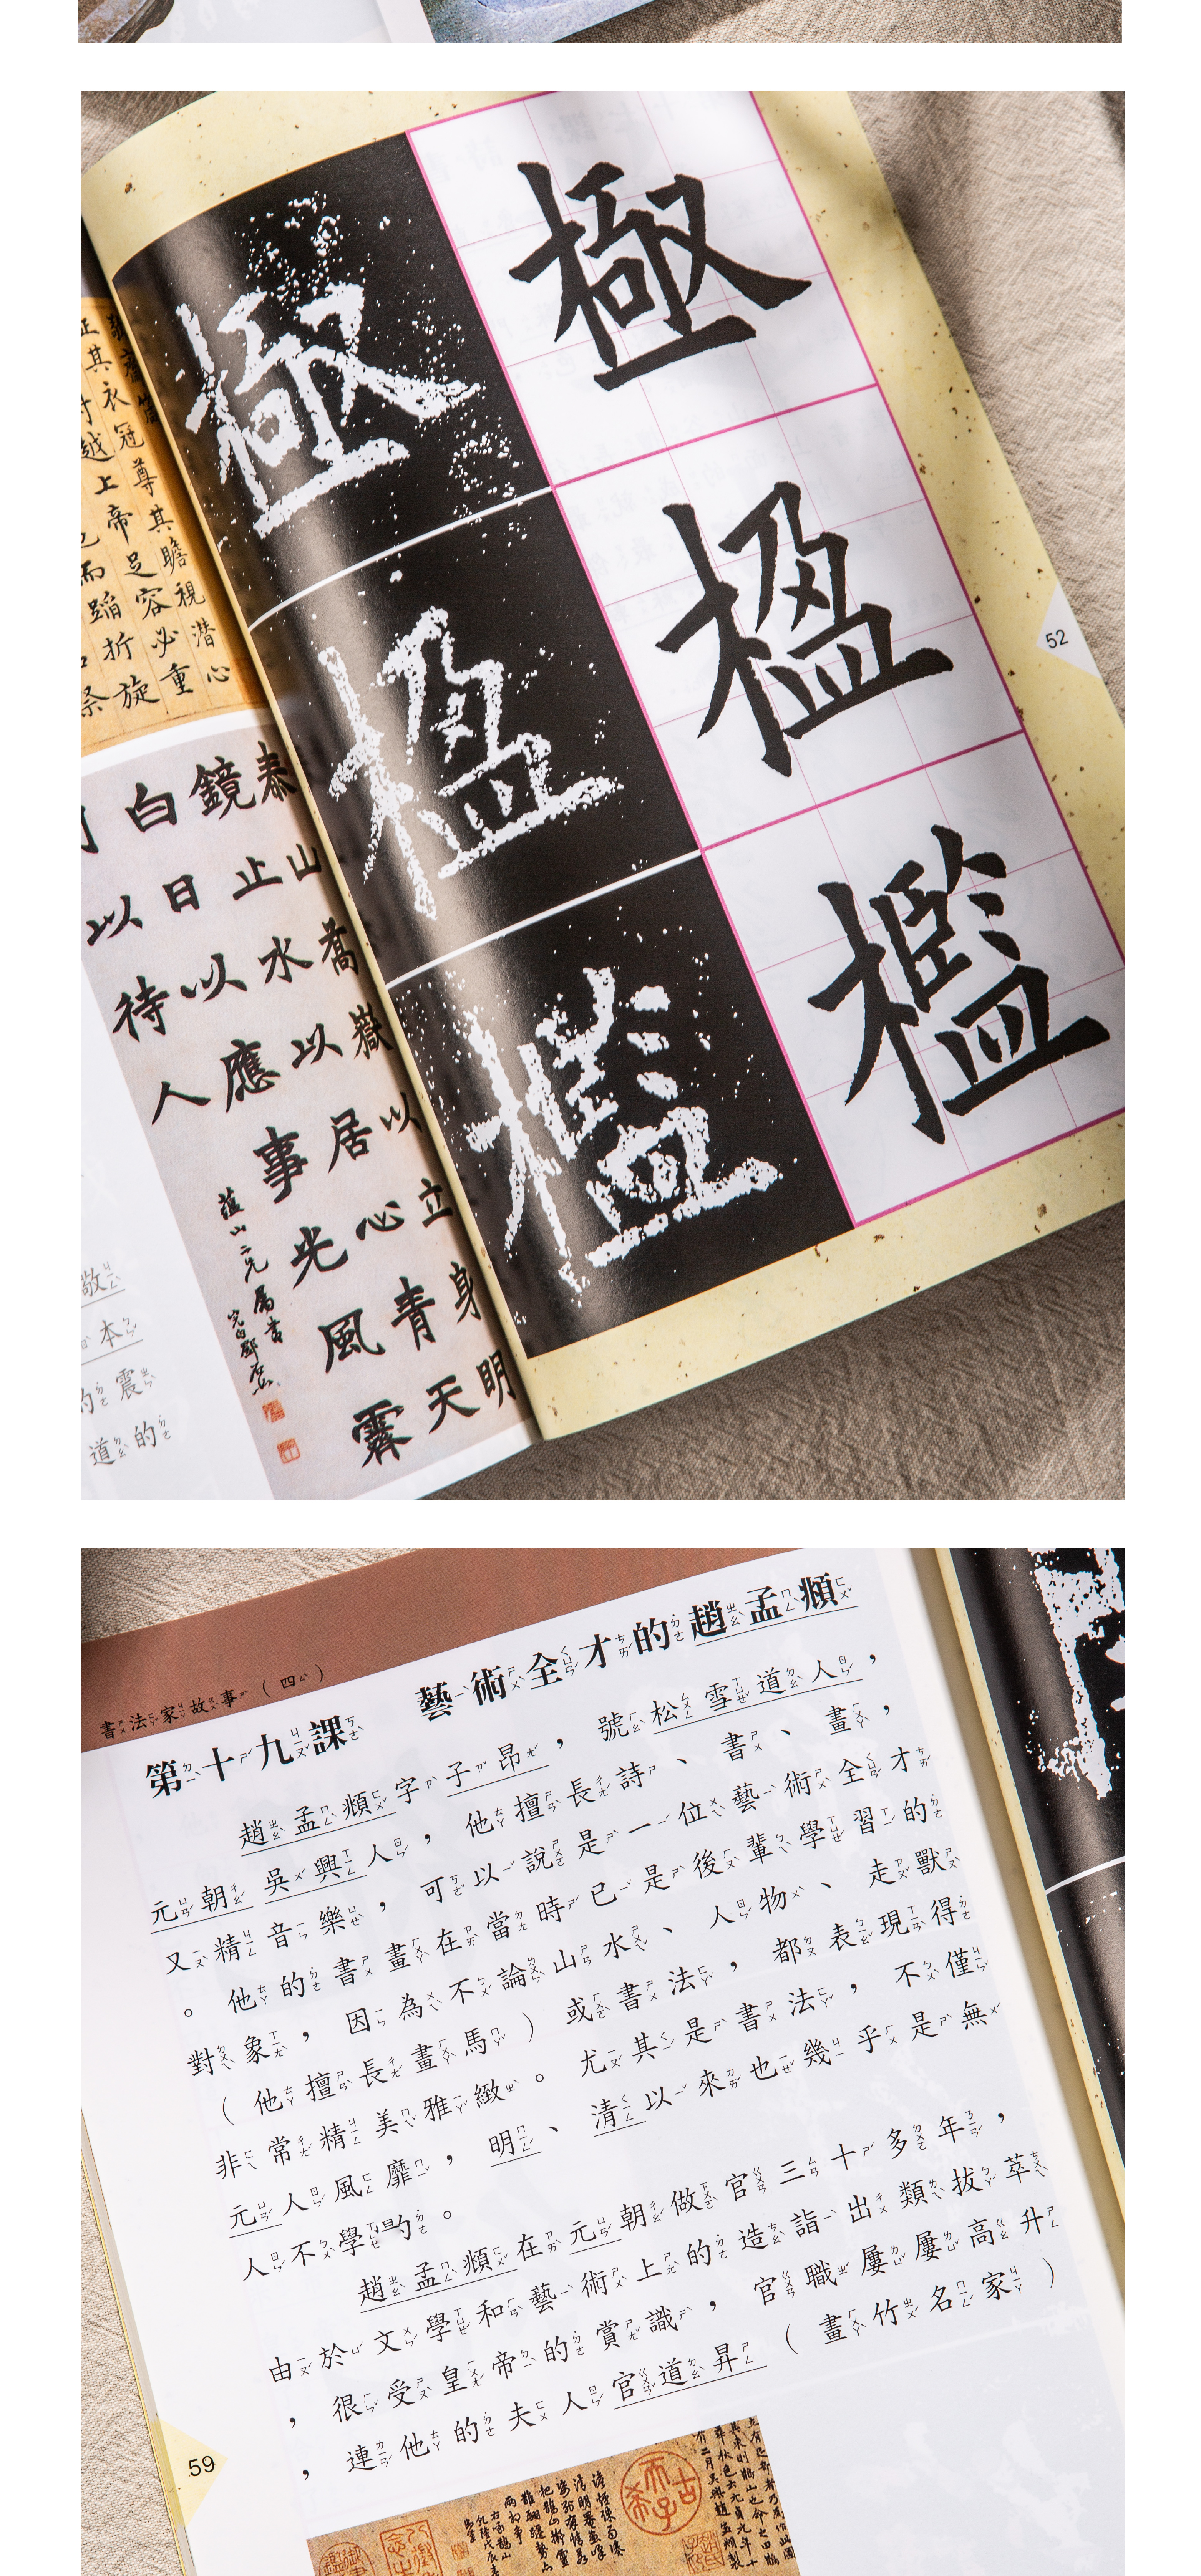 極
楹
檻
52
敬齋箴
正其衣冠尊其瞻視潛心
對越上帝足容必重
而蹈折旋
泰山喬嶽以立身明
鏡止水以居心青天
白日以應事光風霽
月以待人
蘊山二兄屬書
完白鄧石如
敬
本
的震
道的
書法家故事（四）
第十九課　藝術全才的趙孟頫
趙孟頫字子昂，號松雪道人，
元朝吳興人，他擅長詩、書、畫，
又精音樂，可以說是一位藝術全才
。他的書畫在當時已是後輩學習的
對象，因為不論山水、人物、走獸
（他擅長畫馬）或書法，都表現得
非常精美雅緻。尤其是書法，不僅
元人風靡，明、清以來也幾乎是無
人不學的。
趙孟頫在元朝做官三十多年，
由於文學和藝術上的造詣出類拔萃
，很受皇帝的賞識，官職屢屢高升
，連他的夫人官道昇（畫竹名家）
59